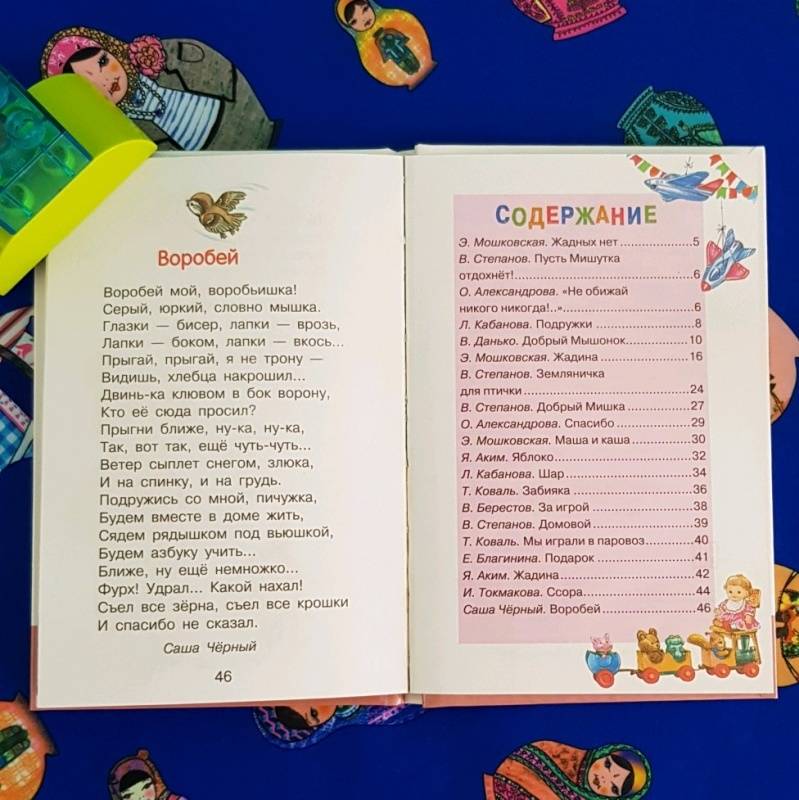 Воробей
Воробей мой, воробьишка!
Серый, юркий, словно мышка.
Глазки — бисер, лапки — врозь,
Лапки — боком, лапки — вкось...
Прыгай, прыгай, я не трону —
Видишь, хлебца накрошил...
Двинь-ка клювом в бок ворону,
Кто её сюда просил?
Прыгни ближе, ну-ка, ну-ка,
Так, вот так, ещё чуть-чуть...
Ветер сыплет снегом, злюка,
И на спинку, и на грудь.
Подружись со мной, пичужка,
Будем вместе в доме жить,
Сядем рядышком под вьюшкой,
Будем азбуку учить...
Ближе, ну ещё немножко...
Фурх! Удрал... Какой нахал!
Съел все зёрна, съел все крошки
И спасибо не сказал.
Саша Чёрный
46
СОДЕРЖАНИЕ
Э. Мошковская. Жадных нет...................5
В. Степанов. Пусть Мишутка
отдохнёт!...................6
О. Александрова. «Не обижай
никого никогда!..»...................6
Л. Кабанова. Подружки...................8
В. Данько. Добрый Мышонок...................10
Э. Мошковская. Жадина...................16
В. Степанов. Земляничка
для птички...................24
В. Степанов. Добрый Мишка...................27
О. Александрова. Спасибо...................29
Э. Мошковская. Маша и каша...................30
Я. Аким. Яблоко...................32
Л. Кабанова. Шар...................34
Т. Коваль. Забияка...................36
В. Берестов. За игрой...................38
В. Степанов. Домовой...................39
Т. Коваль. Мы играли в паровоз...................40
Е. Благинина. Подарок...................41
Я. Аким. Жадина...................42
И. Токмакова. Ссора...................44
Саша Чёрный. Воробей...................46